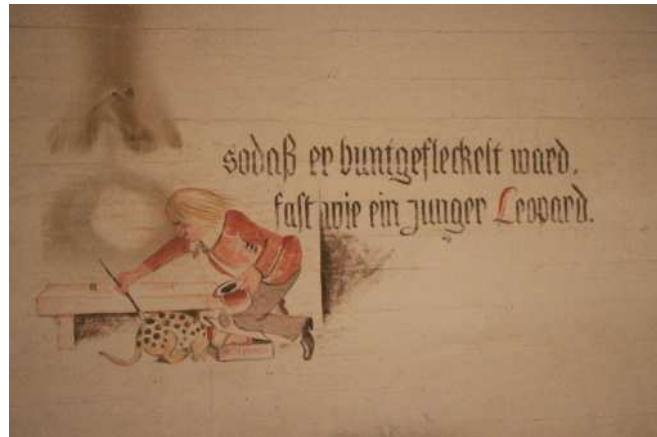 sodaß er buntgefleckelt ward,
fast wie ein junger Leopard.